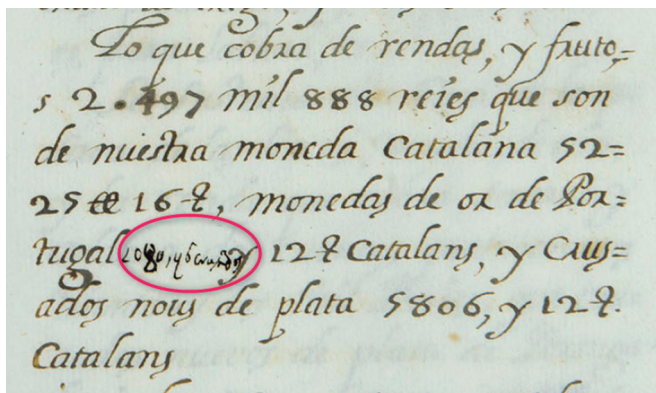 Lo que cobra de rendas, y fruto=
s 2.497 mil 888 reies que son
de nuestra moneda Catalana 52=
25 ₶ 16 , monedas de or de Por=
tugal y 12 Catalans, y Crus=
ados nous de plata 5806, y 12
Catalans